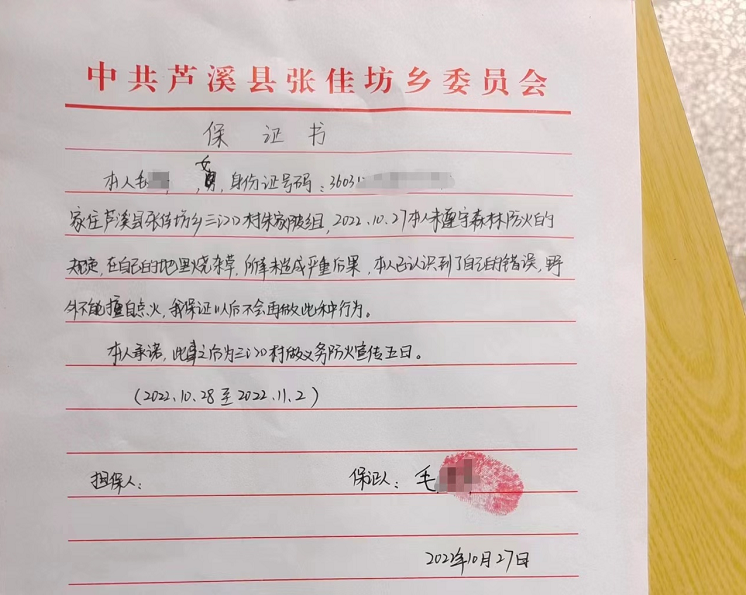 中共芦溪县张佳坊乡委员会
保 证 书
本人毛 , 女 , 身份证号码：3603
家住芦溪县张佳坊乡三江口村朱家陂组，2022.10.27本人未遵守森林防火的
规定，在自己的地里烧杂草，所幸未造成严重后果，本人已认识到了自己的错误，野
外不能擅自点火，我保证以后不会再做此种行为。
本人承诺，此事之后为三江口村做义务防火宣传五日。
（2022.10.28至2022.11.2）
担保人： 保证人：毛
2022年10月27日